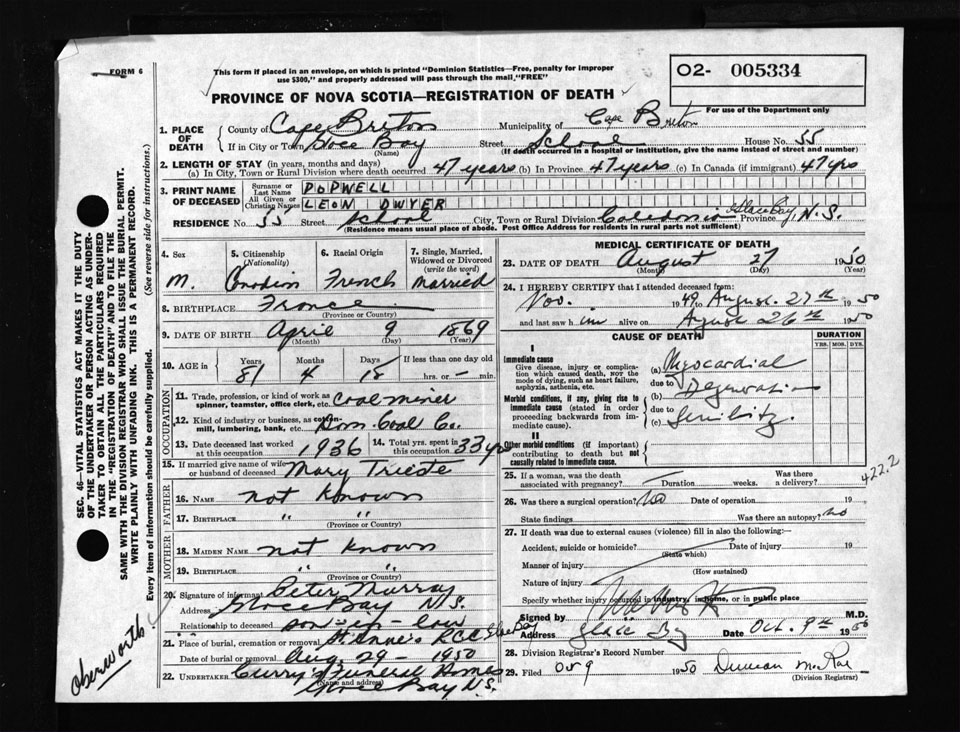 FORM 6
This form if placed in an envelope, on which is printed "Dominion Statistics—Free, penalty for improper
use $300," and properly addressed will pass through the mail, "FREE"
O2- 005334
For use of the Department only
PROVINCE OF NOVA SCOTIA—REGISTRATION OF DEATH
1. PLACE OF DEATH { County of Cape Briton Municipality of Cape Briton
If in City or Town Glace Bay (Name) Street School House No. 55
(If death occurred in a hospital or institution, give the name instead of street and number)
2. LENGTH OF STAY (in years, months and days)
(a) In City, Town or Rural Division where death occurred 47 years (b) In Province 47 years (c) In Canada (if immigrant) 47 yrs
3. PRINT NAME OF DECEASED { Surname or Last Name POPWELL
All Given or Christian Names LEON DWYER
RESIDENCE No. 55 Street School City, Town or Rural Division Caledonia Glace Bay, Province N.S.
(Residence means usual place of abode. Post Office Address for residents in rural parts not sufficient)
4. Sex M.
5. Citizenship (Nationality)
6. Racial Origin French
7. Single, Married, Widowed or Divorced (write the word) Married
8. BIRTHPLACE France
(Province or Country)
9. DATE OF BIRTH April 9 1869
(Month) (Day) (Year)
10. AGE IN { Years 81 Months 4 Days 18 If less than one day old hrs. or — min.
OCCUPATION
11. Trade, profession, or kind of work as spinner, teamster, office clerk, etc. Coal miner
12. Kind of industry or business, as cotton-mill, lumbering, bank, etc. Dom. Coal Co.
13. Date deceased last worked at this occupation 1936
14. Total yrs. spent in this occupation 33 yrs
15. If married give name of wife or husband of deceased Mary
FATHER
16. NAME not known
17. BIRTHPLACE " "
(Province or Country)
MOTHER
18. MAIDEN NAME not known
19. BIRTHPLACE " "
(Province or Country)
20. Signature of informant Peter Murray
Address Glace Bay N.S.
Relationship to deceased son-in-law
21. Place of burial, cremation or removal St. Anne's R.C.C. Glace Bay
Date of burial or removal Aug 29 - 1950
22. UNDERTAKER Curry's Funeral Home
(Name and address)
Glace Bay N.S.
MEDICAL CERTIFICATE OF DEATH
23. DATE OF DEATH August 27 1950
(Month) (Day) (Year)
24. I HEREBY CERTIFY that I attended deceased from:
Nov. 1949 to August 27th 1950
and last saw him alive on August 26th 1950
CAUSE OF DEATH
DURATION
YRS. MOS. DYS.
I
Immediate cause
Give disease, injury or complication which caused death, NOT the mode of dying, such as heart failure, asphyxia, asthenia, etc.
(a) Myocardial
due to
Morbid conditions, if any, giving rise to immediate cause (stated in order proceeding backwards from immediate cause).
(b) Degeneration
due to
(c) Senility
II
Other morbid conditions (if important) contributing to death but not causally related to immediate cause.
25. If a woman, was the death associated with pregnancy? Duration weeks. Was there a delivery?
422.2
26. Was there a surgical operation? No Date of operation 19
State findings Was there an autopsy? no
27. If death was due to external causes (violence) fill in also the following:—
Accident, suicide or homicide? Date of injury 19
(State which)
Manner of injury
(How sustained)
Nature of injury
Specify whether injury occurred in industry, in home, or in public place
Signed by M.D.
Address Glace Bay Date Oct. 9th 1950
28. Division Registrar's Record Number
29. Filed Oct 9 1950 Duncan McRae
(Division Registrar)
SEC. 46—VITAL STATISTICS ACT MAKES IT THE DUTY
OF THE UNDERTAKER OR PERSON ACTING AS UNDER-
TAKER TO OBTAIN ALL THE PARTICULARS REQUIRED
IN THE "REGISTRATION OF DEATH" AND TO FILE THE
SAME WITH THE DIVISION REGISTRAR WHO SHALL ISSUE THE BURIAL PERMIT.
WRITE PLAINLY WITH UNFADING INK. THIS IS A PERMANENT RECORD.
Every item of information should be carefully supplied. (See reverse side for instructions.)
Oberworth